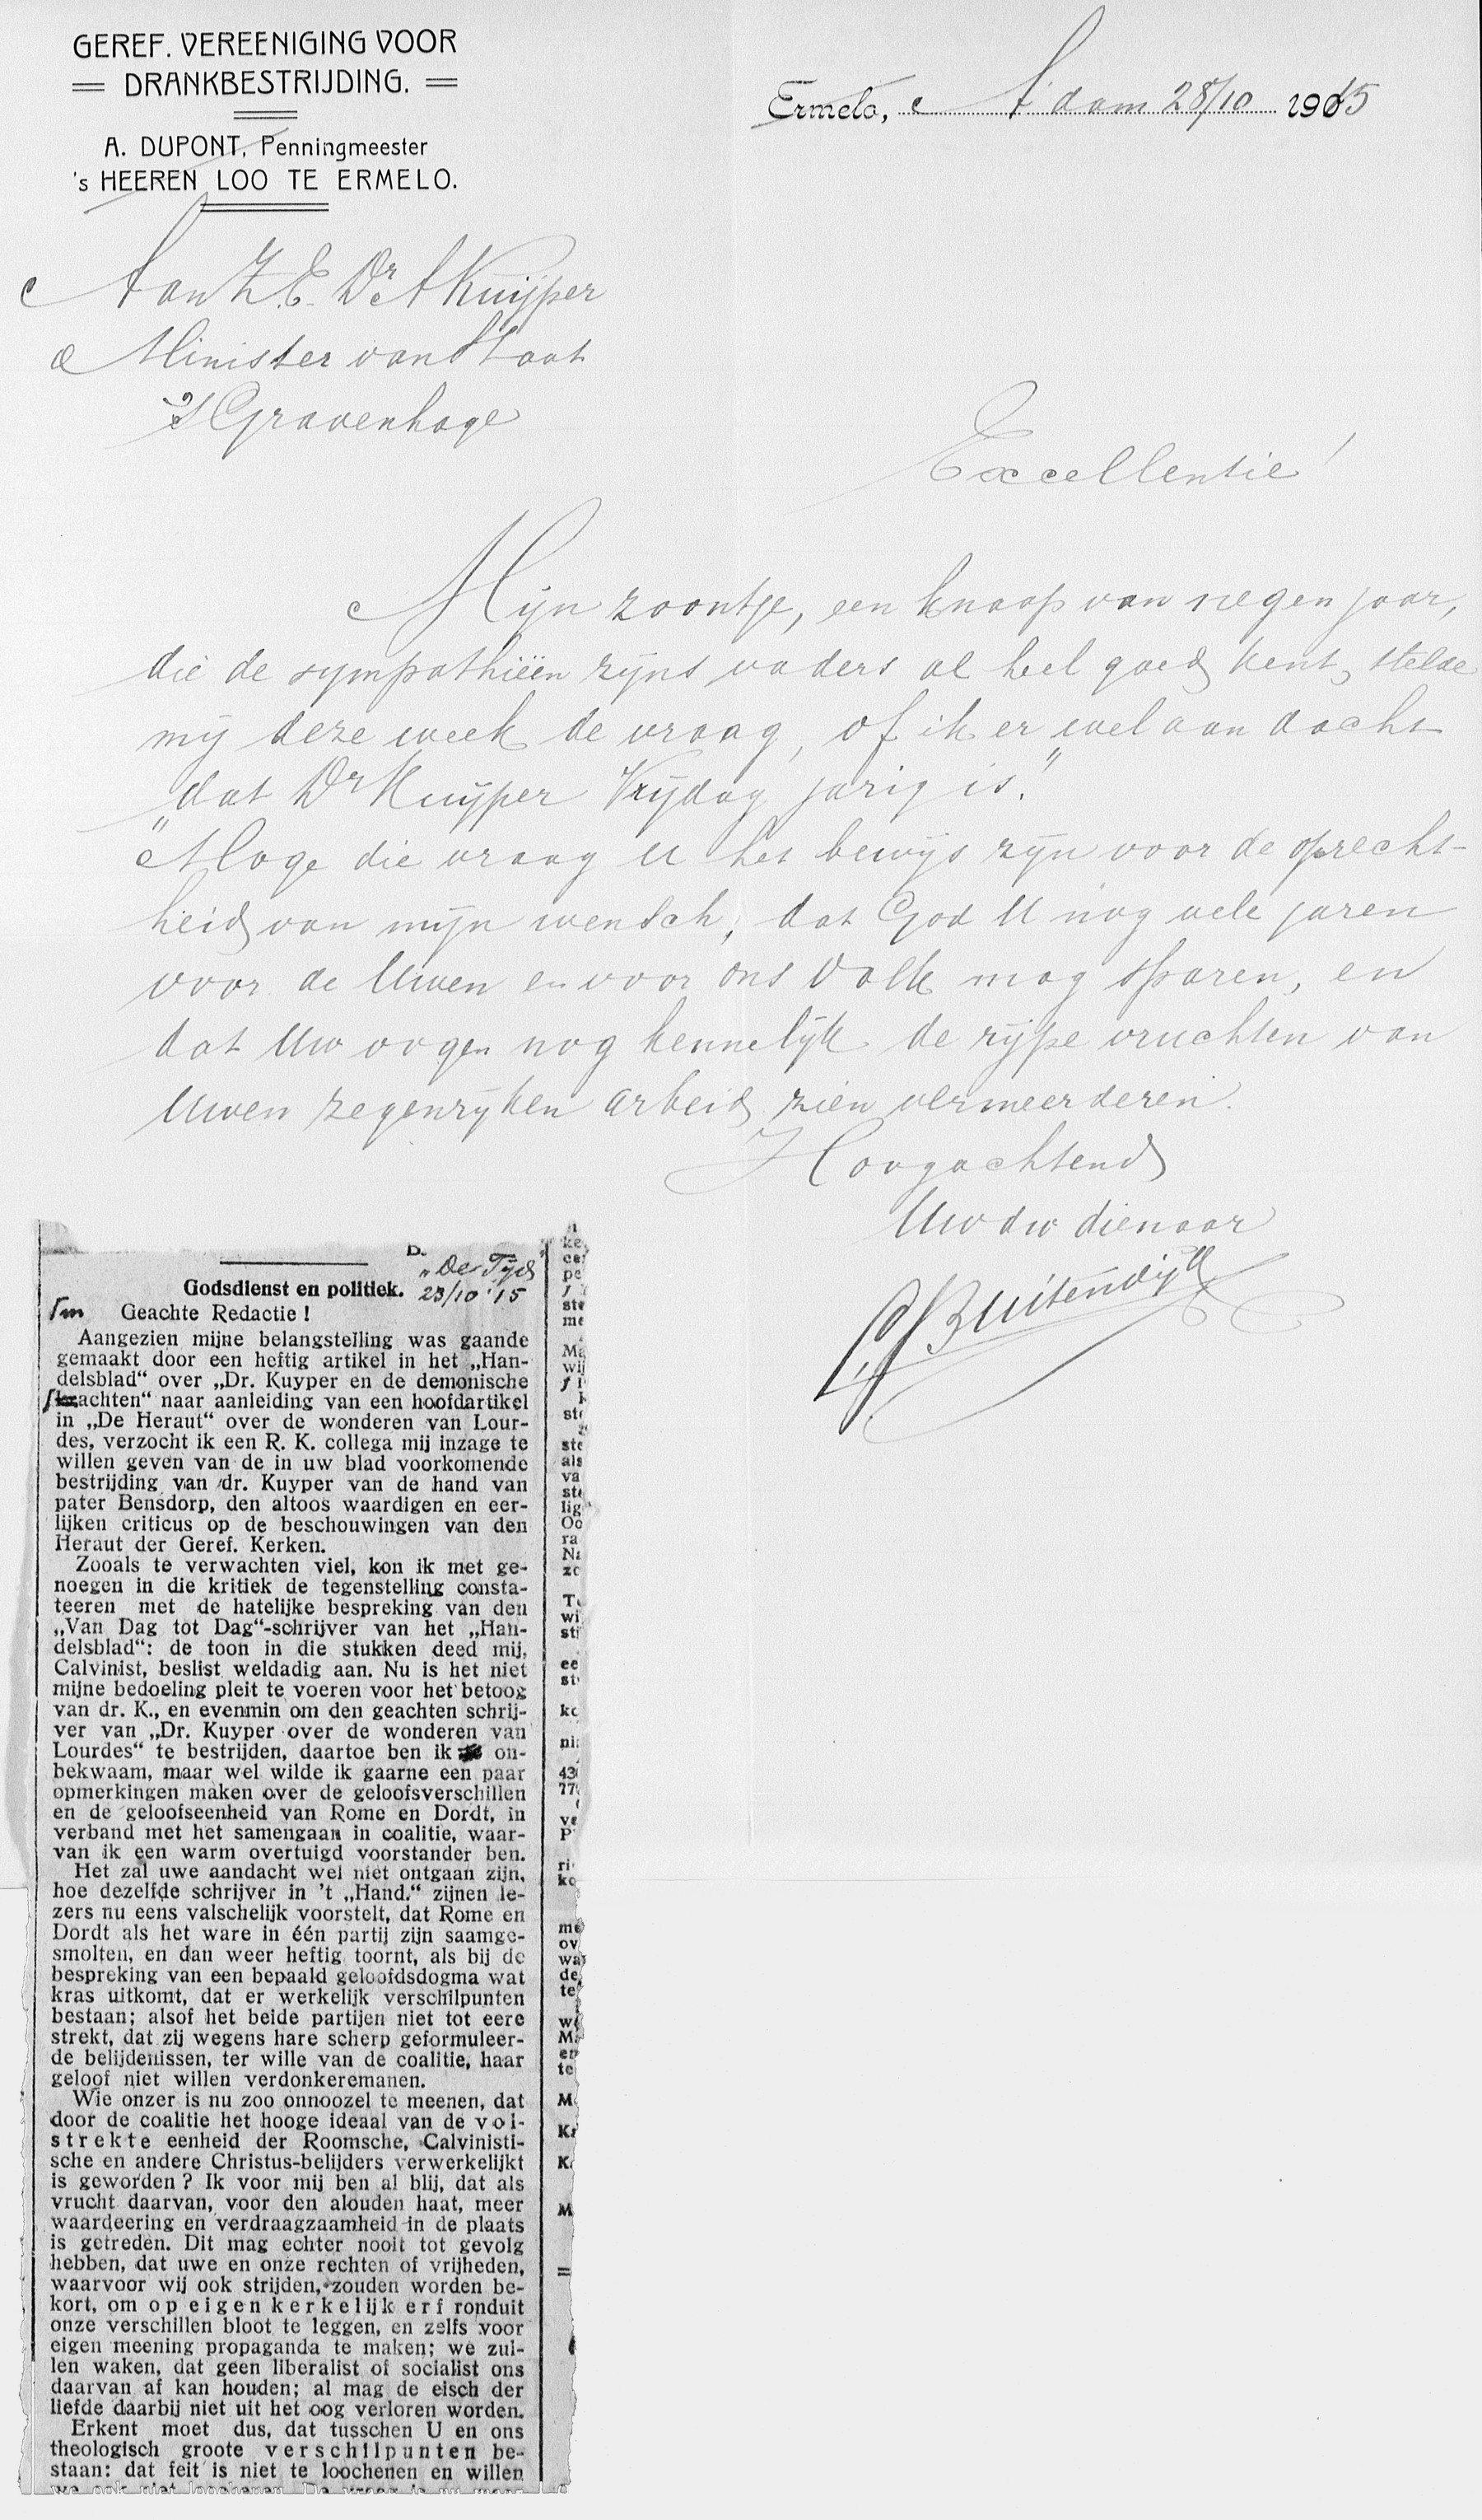 GEREF. VEREENIGING VOOR
DRANKBESTRIJDING.
A. DUPONT, Penningmeester
's HEEREN LOO TE ERMELO.
Ermelo, A'dam 28/10 1915
Aan Z.E. Dr A Kuijper
Minister van Staat
's Gravenhage
Excellentie!
Mijn zoontje, een knaap van negen jaar,
die de sympathiëen zijns vaders al heel goed kent, stelde
mij deze week de vraag, of ik er wel aan dacht
„dat Dr Kuijper Vrijdag jarig is."
Moge die vraag U het bewijs zijn voor de oprecht-
heid van mijn wensch, dat God U nog vele jaren
voor de Uwen en voor ons Volk mag sparen, en
dat Uw oogen nog kennelijk de rijpe vruchten van
Uwen zegenrijken arbeid zien vermeerderen.
Hoogachtend
Uw dw dienaar
Buitendijk
„De Tijd"
Godsdienst en politiek. 23/10 '15
Geachte Redactie!
Aangezien mijne belangstelling was gaande
gemaakt door een heftig artikel in het „Han-
delsblad" over „Dr. Kuyper en de demonische
krachten" naar aanleiding van een hoofdartikel
in „De Heraut" over de wonderen van Lour-
des, verzocht ik een R. K. collega mij inzage te
willen geven van de in uw blad voorkomende
bestrijding van dr. Kuyper van de hand van
pater Bensdorp, den altoos waardigen en eer-
lijken criticus op de beschouwingen van den
Heraut der Geref. Kerken.
Zooals te verwachten viel, kon ik met ge-
noegen in die kritiek de tegenstelling consta-
teeren met de hatelijke bespreking van den
„Van Dag tot Dag"-schrijver van het „Han-
delsblad": de toon in die stukken deed mij,
Calvinist, beslist weldadig aan. Nu is het niet
mijne bedoeling pleit te voeren voor het betoog
van dr. K., en evenmin om den geachten schrij-
ver van „Dr. Kuyper over de wonderen van
Lourdes" te bestrijden, daartoe ben ik on-
bekwaam, maar wel wilde ik gaarne een paar
opmerkingen maken over de geloofsverschillen
en de geloofseenheid van Rome en Dordt, in
verband met het samengaan in coalitie, waar-
van ik een warm overtuigd voorstander ben.
Het zal uwe aandacht wel niet ontgaan zijn,
hoe dezelfde schrijver in 't „Hand." zijnen le-
zers nu eens valschelijk voorstelt, dat Rome en
Dordt als het ware in één partij zijn saamge-
smolten, en dan weer heftig toornt, als bij de
bespreking van een bepaald geloofdsdogma wat
kras uitkomt, dat er werkelijk verschilpunten
bestaan; alsof het beide partijen niet tot eere
strekt, dat zij wegens hare scherp geformuleer-
de belijdenissen, ter wille van de coalitie, haar
geloof niet willen verdonkeremanen.
Wie onzer is nu zoo onnoozel te meenen, dat
door de coalitie het hooge ideaal van de vol-
strekte eenheid der Roomsche, Calvinisti-
sche en andere Christus-belijders verwerkelijkt
is geworden? Ik voor mij ben al blij, dat als
vrucht daarvan, voor den alouden haat, meer
waardeering en verdraagzaamheid in de plaats
is getreden. Dit mag echter nooit tot gevolg
hebben, dat uwe en onze rechten of vrijheden,
waarvoor wij ook strijden, zouden worden be-
kort, om op eigen kerkelijk erf ronduit
onze verschillen bloot te leggen, en zelfs voor
eigen meening propaganda te maken; we zul-
len waken, dat geen liberalist of socialist ons
daarvan af kan houden; al mag de eisch der
liefde daarbij niet uit het oog verloren worden.
Erkent moet dus, dat tusschen U en ons
theologisch groote verschilpunten be-
staan: dat feit is niet te loochenen en willen